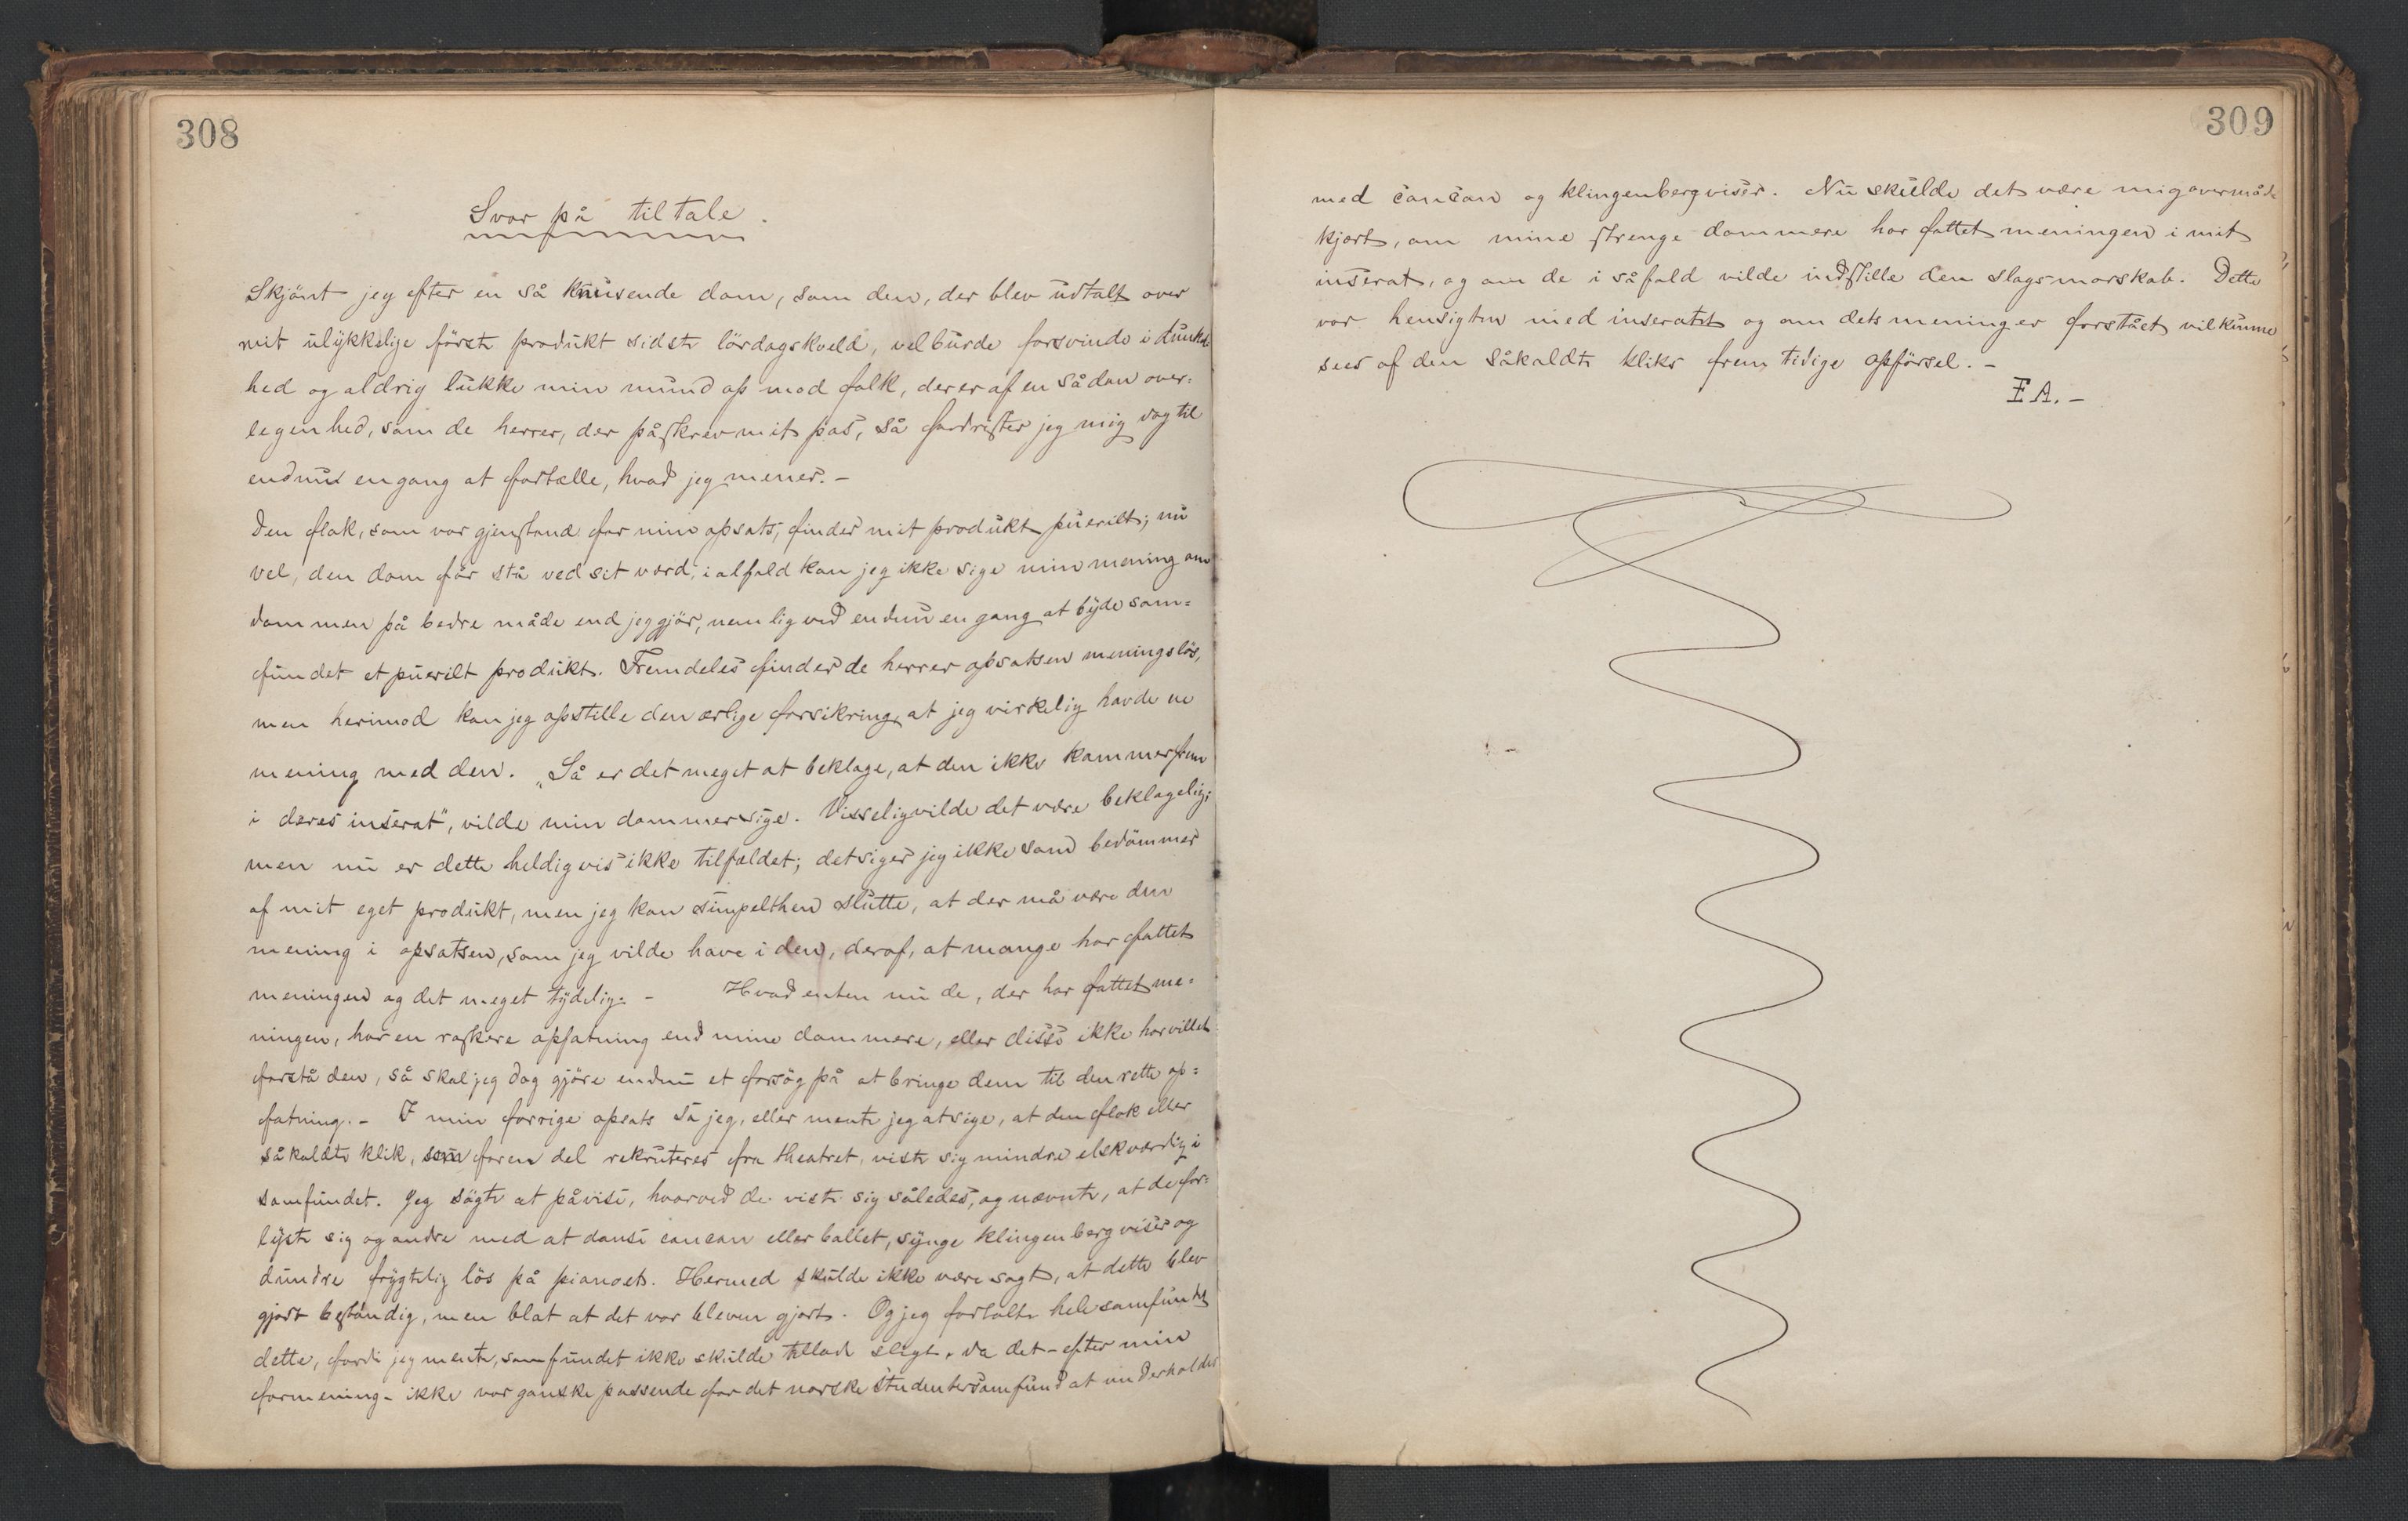 308
Svar på tiltale.
Skjönt jeg efter en så knusende dom, som den, der blev udtalt over
mit ulykkelige förste produkt sidste lördagskveld, vel burde forsvinde i dunkel
hed og aldrig lukke min mund op mod folk, der er af en sådan over=
legenhed, som de herrer, der påskrev mit pas, så fordrister jeg mig dog til
endnu engang at fortælle, hvad jeg mener. –
Den flok, som var gjenstand for min opsats, finder mit produkt puerilt; nu
vel, den dom får stå ved sit værd; i alfald kan jeg ikke sige min mening om
dommen på bedre måde end jeg gjör, nemlig ved endnu engang at byde sam=
fundet et puerilt produkt. Fremdeles finder de herrer opsatsen meningslös,
men herimod kan jeg opstille den ærlige forsikring, at jeg virkelig havde en
mening med den. „Så er det meget at beklage, at den ikke kommer frem
i deres inserat", vilde min dommer sige. Visselig vilde det være beklagelig;
men nu er dette heldigvis ikke tilfældet; det siger jeg ikke som bedömmer
af mit eget produkt, men jeg kan simpelthen slutte, at der må være den
mening i opsatsen, som jeg vilde have i den, deraf, at mange har fattet
meningen og det meget tydelig. – Hvad enten nu de, der har fattet me=
ningen, har en raskere opfatning end mine dommere, eller disse ikke har villet
forstå den, så skal jeg dog gjöre endnu et forsög på at bringe dem til den rette op=
fatning. – I min forrige opsats sa jeg, eller mente jeg at sige, at den flok eller
såkaldte klik, som for en del rekruteres fra theatret, viste sig mindre elskværdig i
samfundet. Jeg sögte at påvise, hvorved de viste sig således, og nævnte, at de for=
lyste sig og andre med at danse cancan eller ballet, synge klingenbergviser og
dundre frygtelig lös på pianoet. Hermed skulde ikke være sagt, at dette blev
gjort bestandig, men blot at det var bleven gjort. Og jeg fortalte hele samfundet
dette, fordi jeg mente, samfundet ikke skulde tillade sligt, da det – efter min
formening – ikke var ganske passende for det norske studentersamfund at underholdes
309
med cancan og klingenbergviser. Nu skulde det være mig overmåde
kjært, om mine strenge dommere har fattet meningen i mit
inserat, og om de i såfald vilde indstille den slags morskab. Dette
var hensigten med inseratet og om dets mening er forstået vil kunne
sees af den såkaldte kliks fremtidige opförsel. –
E A. –